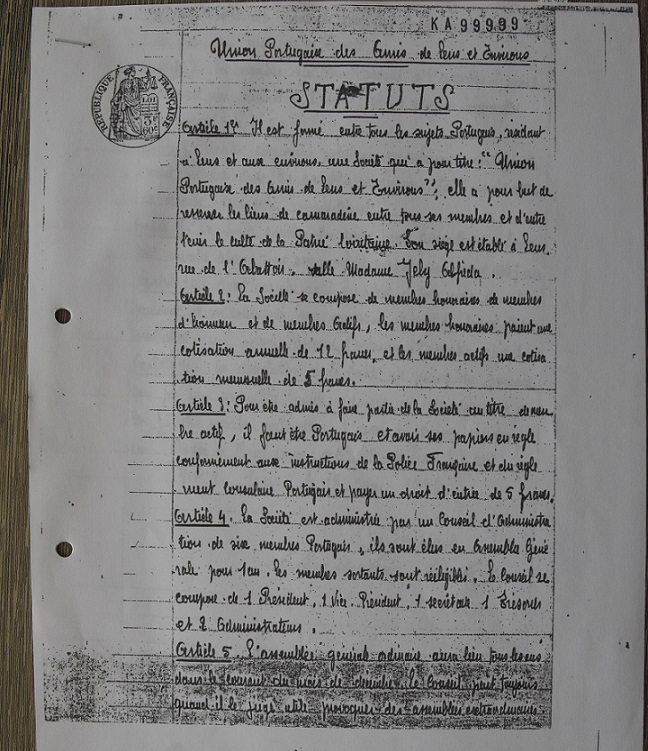 KA 99999
Union Portugaise des Amis de Lens et Environs
STATUTS
RÉPUBLIQUE FRANÇAISE
LOI
3F
60c
Article 1er Il est formé entre tous les sujets Portugais, résidant
à Lens et aux environs, une Société qui a pour titre: "Union
Portugaise des Amis de Lens et Environs", elle a pour but de
resserrer les liens de camaraderie entre tous ses membres et d'entre
tenir le culte de la Patrie. Son siège est établi à Lens,
rue de l'Abattoir, salle Madame Jely Alfreda.
Article 2: La Société se compose de membres honoraires de membres
d'honneur et de membres actifs, les membres honoraires paient une
cotisation annuelle de 12 francs, et les membres actifs une cotisa
tion mensuelle de 5 francs.
Article 3: Pour être admis à faire partie de la Société au titre de mem
bre actif, il faut être Portugais et avoir ses papiers en règle
conformément aux instructions de la Police Française et du règle
ment consulaire Portugais et payer un droit d'entrée de 5 francs.
Article 4. La Société est administrée par un Conseil d'Administra
tion de six membres Portugais, ils sont élus en Assemblée Géné
rale pour 1 an. Les membres sortants sont rééligibles. Le Conseil se
compose de 1 Président, 1 Vice Président, 1 secrétaire 1 Trésorier
et 2 Administrateurs.
Article 5. L'assemblée générale ordinaire aura lieu tous les ans
dans le courant du mois de décembre, le Conseil peut toujours
quand il le juge utile provoquer des assemblées extraordinaires